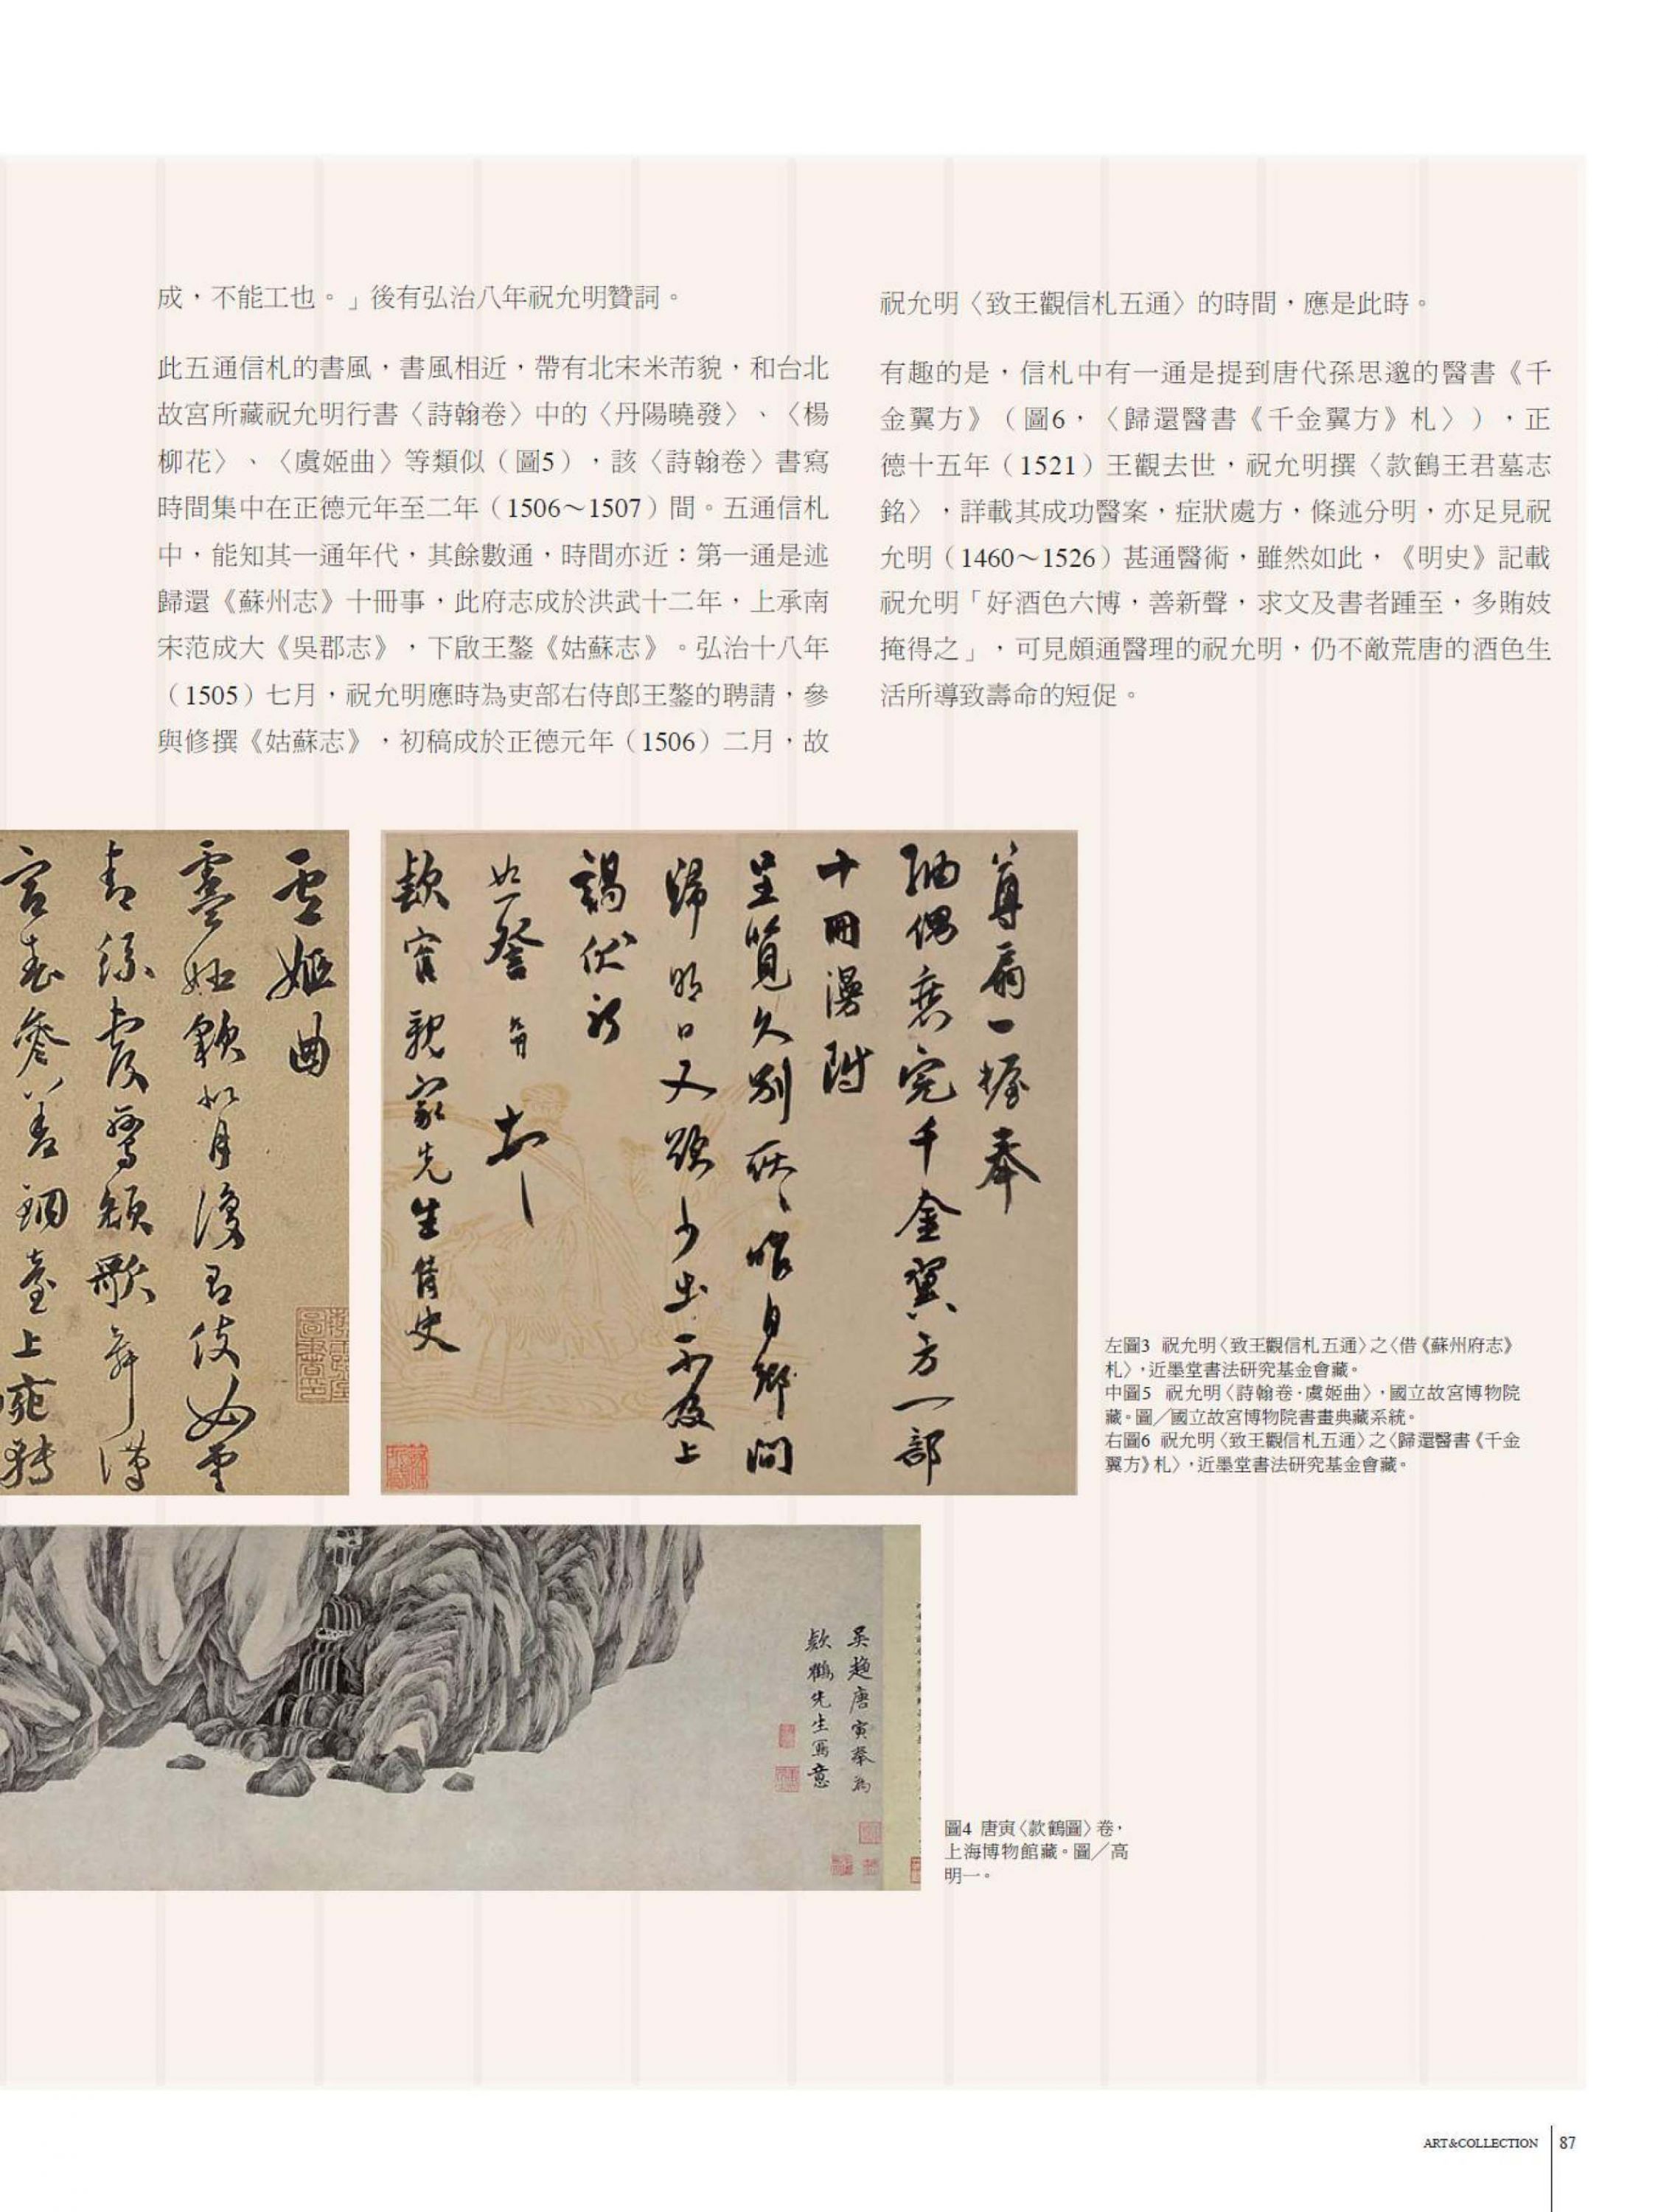 成，不能工也。」後有弘治八年祝允明贊詞。
此五通信札的書風，書風相近，帶有北宋米芾貌，和台北
故宮所藏祝允明行書〈詩翰卷〉中的〈丹陽曉發〉、〈楊
柳花〉、〈虞姬曲〉等類似（圖5），該〈詩翰卷〉書寫
時間集中在正德元年至二年（1506～1507）間。五通信札
中，能知其一通年代，其餘數通，時間亦近：第一通是述
歸還《蘇州志》十冊事，此府志成於洪武十二年，上承南
宋范成大《吳郡志》，下啟王鏊《姑蘇志》。弘治十八年
（1505）七月，祝允明應時為吏部右侍郎王鏊的聘請，參
與修撰《姑蘇志》，初稿成於正德元年（1506）二月，故
祝允明〈致王觀信札五通〉的時間，應是此時。
有趣的是，信札中有一通是提到唐代孫思邈的醫書《千
金翼方》（圖6，〈歸還醫書《千金翼方》札〉），正
德十五年（1521）王觀去世，祝允明撰〈款鶴王君墓志
銘〉，詳載其成功醫案，症狀處方，條述分明，亦足見祝
允明（1460～1526）甚通醫術，雖然如此，《明史》記載
祝允明「好酒色六博，善新聲，求文及書者踵至，多賄妓
掩得之」，可見頗通醫理的祝允明，仍不敵荒唐的酒色生
活所導致壽命的短促。
尊扇一握奉
納偶患完千金翼方一部
十冊漫附
呈覽久別
歸明日又欲少出不及上
謁伏
款鶴親家先生侍史
左圖3 祝允明〈致王觀信札五通〉之〈借《蘇州府志》
札〉，近墨堂書法研究基金會藏。
中圖5 祝允明〈詩翰卷·虞姬曲〉，國立故宮博物院
藏。圖／國立故宮博物院書畫典藏系統。
右圖6 祝允明〈致王觀信札五通〉之〈歸還醫書《千金
翼方》札〉，近墨堂書法研究基金會藏。
吳趨唐寅奉為
款鶴先生寫意
圖4 唐寅〈款鶴圖〉卷，
上海博物館藏。圖／高
明一。
ART&COLLECTION 87